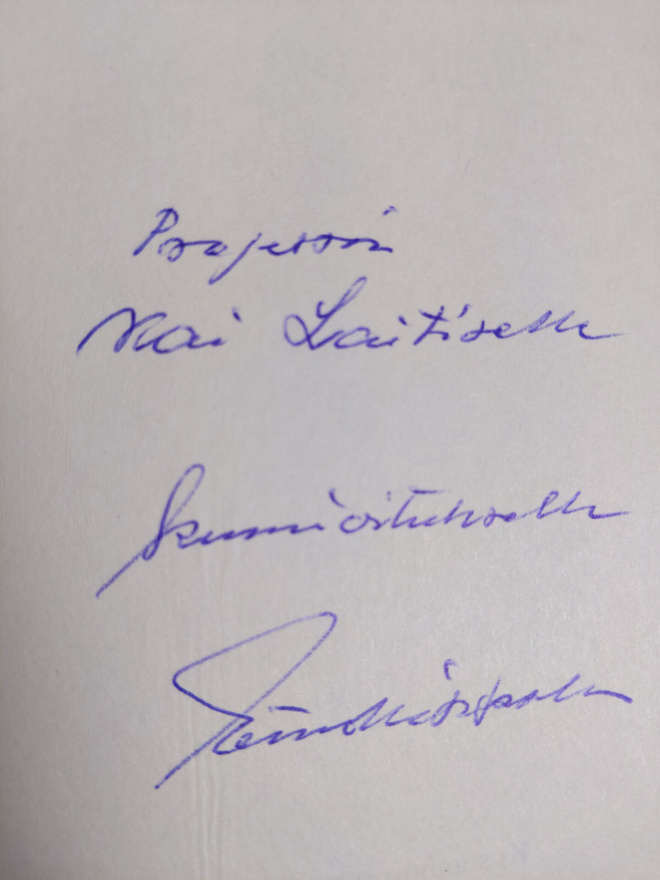 Professori
Kai Laitiselle
kunnioituksella